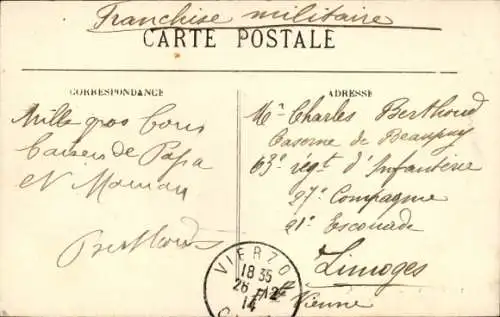 Franchise militaire
CARTE POSTALE
CORRESPONDANCE
Mille gros bons
baisers de Papa
et Maman
Berthoud
ADRESSE
Mr Charles Berthoud
Caserne de Beaupuy
63e regt d'Infanterie
27e Compagnie
21e Escouade
Limoges
Vienne
VIERZO
18 35
26
14